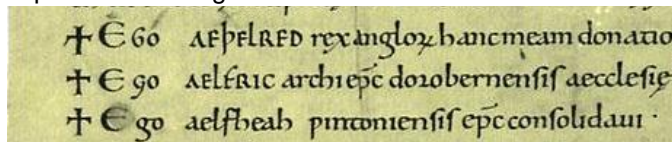 + EGO AEÞELRED rex angloꝝ hanc meam donatio
+ Ego AELFRIC archiep̄c dorobernensis aecclesię
+ Ego aelfheah ƿintoniensis ep̄c consolidaui ·